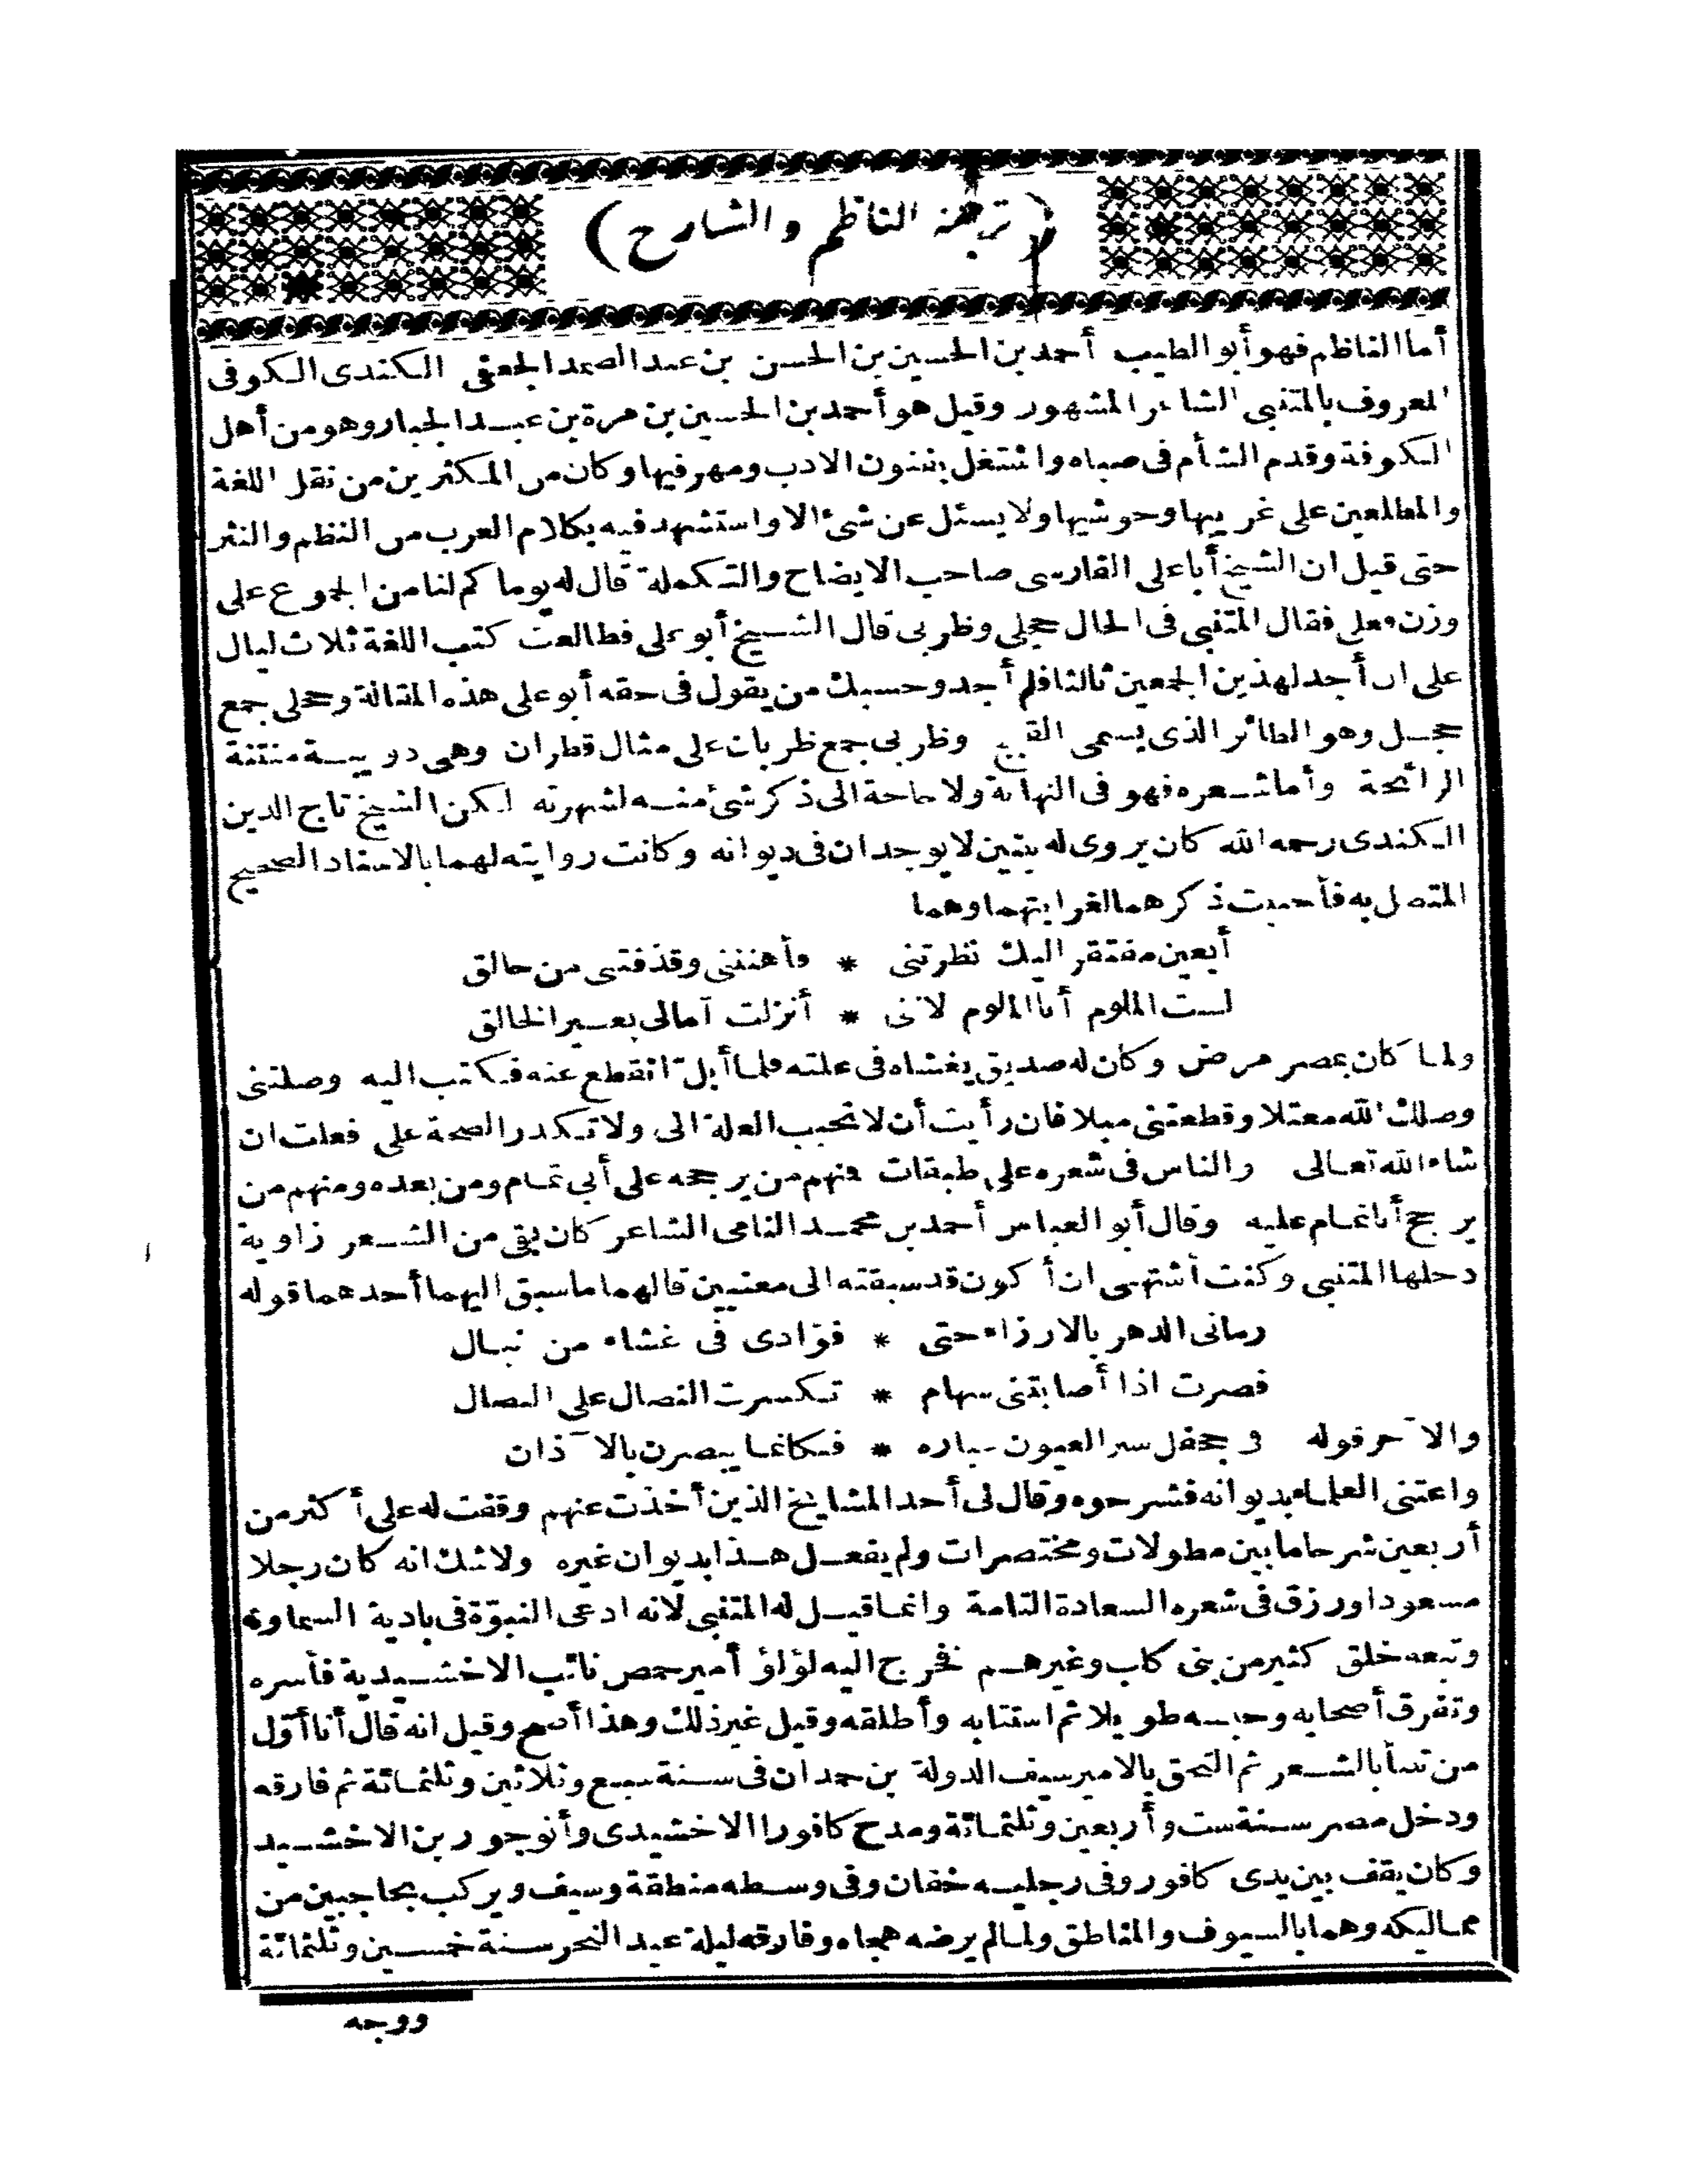 (ترجمة الناظم والشارح)
أما الناظم فهو أبو الطيب أحمد بن الحسين بن الحسن بن عبد الصمد الجعفى الكندى الكوفى
المعروف بالمتنبى الشاعر المشهور وقيل هو أحمد بن الحسين بن مرة بن عبد الجبار وهو من أهل
الكوفة وقدم الشأم فى صباه واشتغل بفنون الادب ومهر فيها وكان من المكثرين من نقل اللغة
والمطلعين على غريبها وحوشيها ولا يسئل عن شئ الا واستشهد فيه بكلام العرب من النظم والنثر
حتى قيل ان الشيخ أبا على الفارسى صاحب الايضاح والتكملة قال له يوما كم لنا من الجموع على
وزن فعلى فقال المتنبى فى الحال حجلى وظربى قال الشيخ أبو على فطالعت كتب اللغة ثلاث ليال
على ان أجد لهذين الجمعين ثالثا فلم أجد وحسبك من يقول فى حقه أبو على هذه المقالة وحجلى جمع
حجل وهو الطائر الذى يسمى القبج وظربى جمع ظربان على مثال قطران وهى دويبة منتنة
الرائحة وأما شعره فهو فى النهاية ولا حاجة الى ذكر شئ منه لشهرته لكن الشيخ تاج الدين
الكندى رحمه الله كان يروى له بيتين لا يوجدان فى ديوانه وكانت روايته لهما بالاسناد الصحيح
المتصل به فأحببت ذكرهما لغرابتهما وهما
أبعين مفتقر اليك نظرتنى * وأهنتنى وقذفتنى من حالق
لست الملوم أنا الملوم لاننى * أنزلت آمالى بغير الخالق
ولما كان بمصر مرض وكان له صديق يغشاه فى علته فلما أبلّ انقطع عنه فكتب اليه وصلتنى
وصلك الله معتلا وقطعتنى مبلا فان رأيت أن لا تحبب العلة الى ولا تكدر الصحة على فعلت ان
شاء الله تعالى والناس فى شعره على طبقات فنهم من يرجحه على أبي تمام ومن بعده ومنهم من
يرجح أبا تمام عليه وقال أبو العباس أحمد بن محمد النامى الشاعر كان بقى من الشعر زاوية
دخلها المتنبى وكنت أشتهى ان أكون قد سبقته الى معنيين قالهما ما سبق اليهما أحدهما قوله
رمانى الدهر بالارزاء حتى * فؤادى فى غشاء من نبال
فصرت اذا أصابتنى سهام * تكسرت النصال على النصال
والآخر قوله فى جحفل ستر العيون غباره * فكانما يبصرن بالآذان
واعتنى العلماء بديوانه فشرحوه وقال لى أحد المشايخ الذين أخذت عنهم وقفت له على أكثر من
أربعين شرحا ما بين مطولات ومختصرات ولم يفعل هذا بديوان غيره ولا شك انه كان رجلا
مسعودا ورزق فى شعره السعادة التامة وانما قيل له المتنبى لانه ادعى النبوّة فى بادية السماوة
وتبعه خلق كثير من بنى كلب وغيرهم فخرج اليه لؤلؤ أمير حمص نائب الاخشيدية فأسره
وتفرق أصحابه وحبسه طويلا ثم استتابه وأطلقه وقيل غير ذلك وهذا أصح وقيل انه قال أنا أوّل
من تنبأ بالشعر ثم التحق بالامير سيف الدولة بن حمدان فى سنة سبع وثلاثين وثلثمائة ثم فارقه
ودخل مصر سنة ست وأربعين وثلثمائة ومدح كافورا الاخشيدى وأنوجور بن الاخشيد
وكان يقف بين يدى كافور وفى رجليه خفان وفى وسطه منطقة وسيف ويركب بحاجبين من
مماليكه وهما بالسيوف والمناطق ولما لم يرضه هجاه وفارقه ليلة عيد النحر سنة خمسين وثلثمائة
ووجه